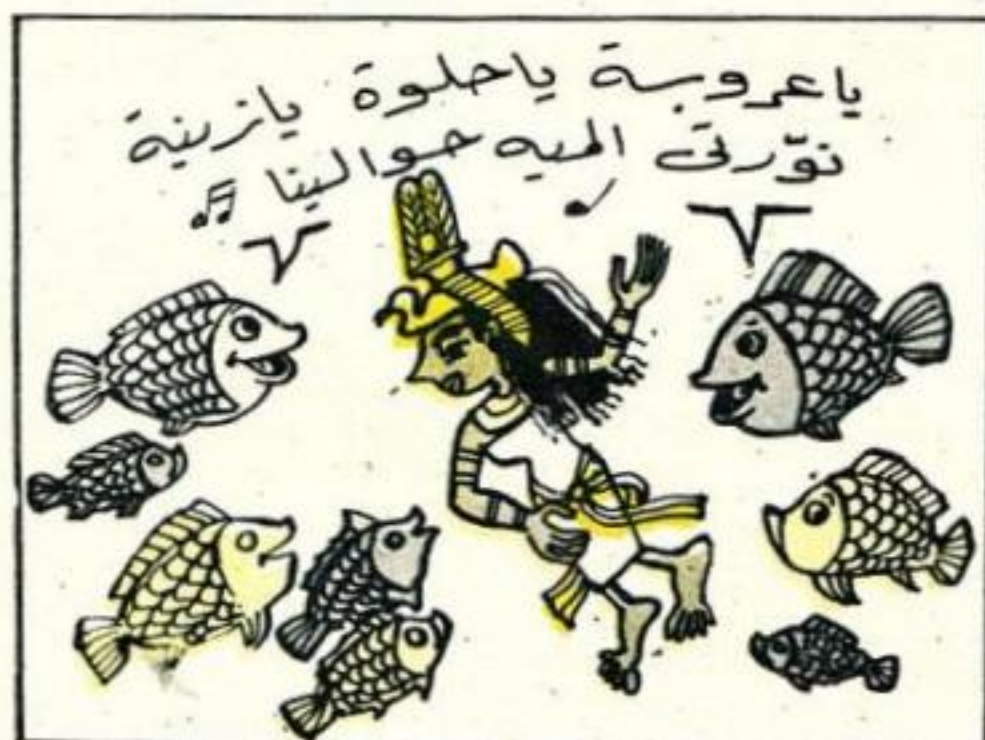 ياعروسة ياحلوة يازينة
نوّرتى الميه حوالينا